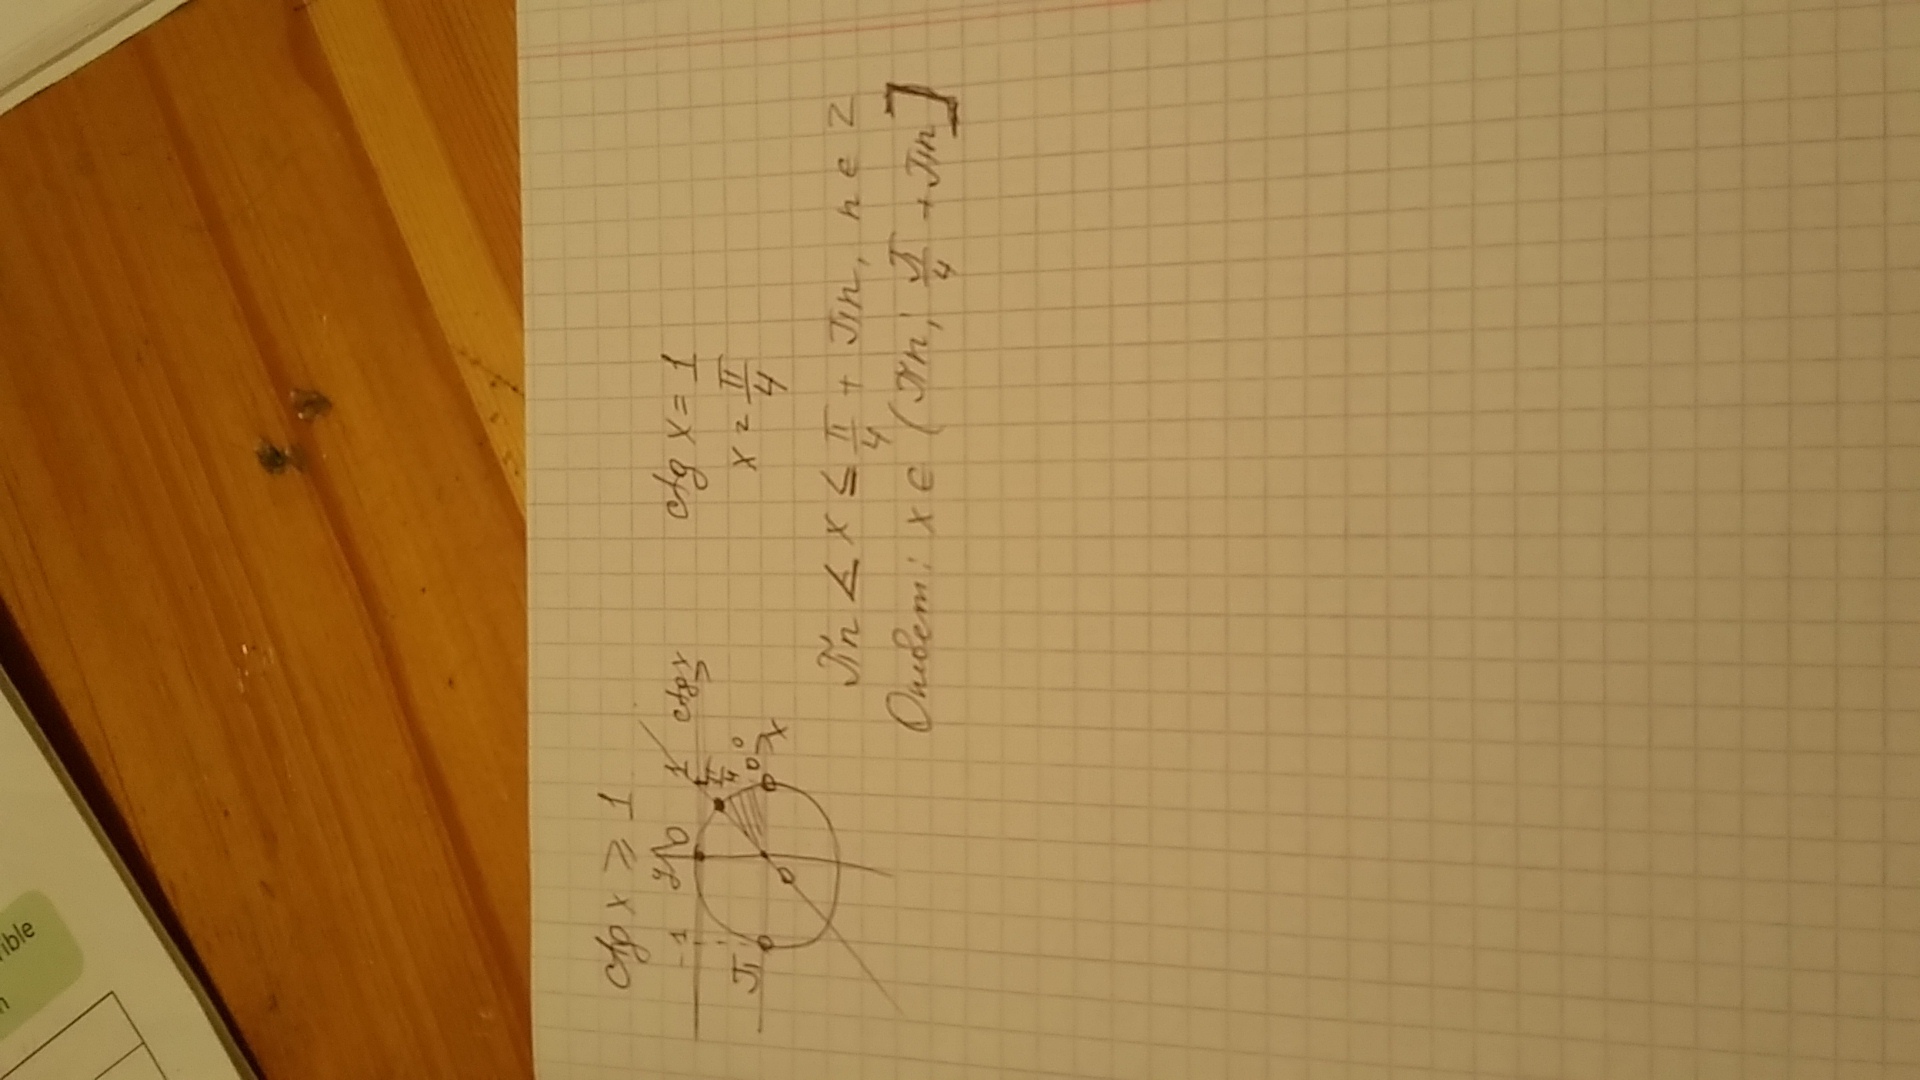 ctg x ≥ 1
y
-1
0
1
ctg x
π
π/4
0
0°
x
ctg x = 1
x = π/4
πn < x ≤ π/4 + πn, n ∈ Z
Ответ: x ∈ (πn; π/4 + πn]
ible